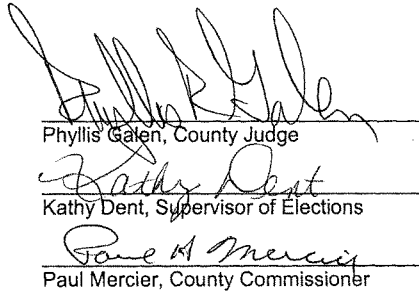 Phyllis R. Galen
Phyllis Galen, County Judge
Kathy Dent
Kathy Dent, Supervisor of Elections
Paul H Mercier
Paul Mercier, County Commissioner